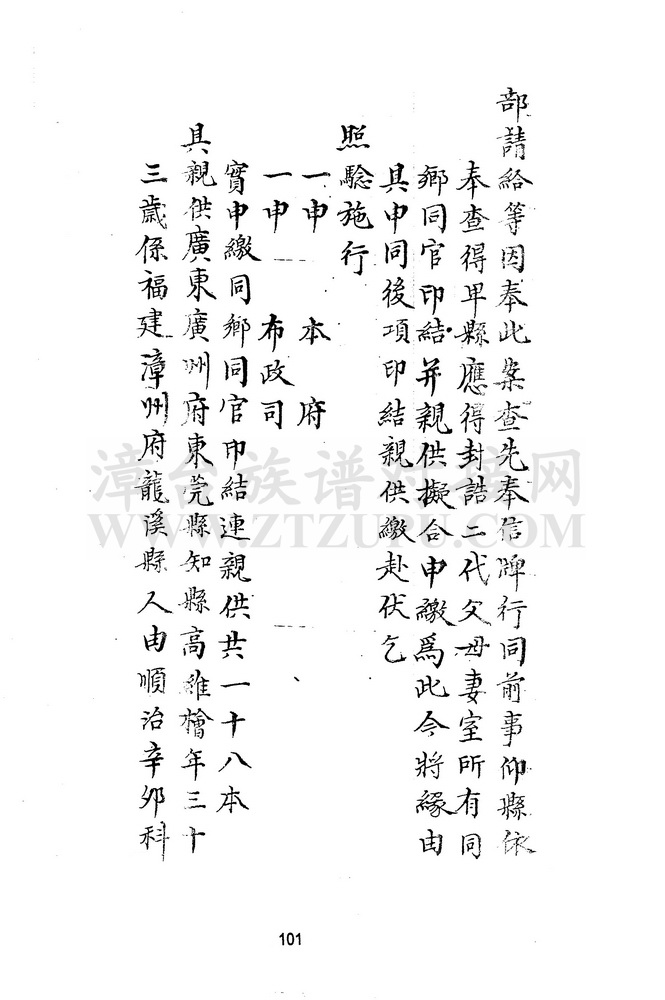 部請給等因奉此案查先奉信牌行同前事仰縣依
奉查得卑縣應得封誥二代父母妻室所有同
鄉同官印結并親供擬合申繳爲此今將緣由
具申同後項印結親供繳赴伏乞
照驗施行
一申 本府
一申 布政司
實申繳同鄉同官印結連親供共一十八本
具親供廣東廣州府東莞縣知縣高維檜年三十
三歲係福建漳州府龍溪縣人由順治辛卯科
漳台族谱对接网
WWW.ZTZUPU.COM
101